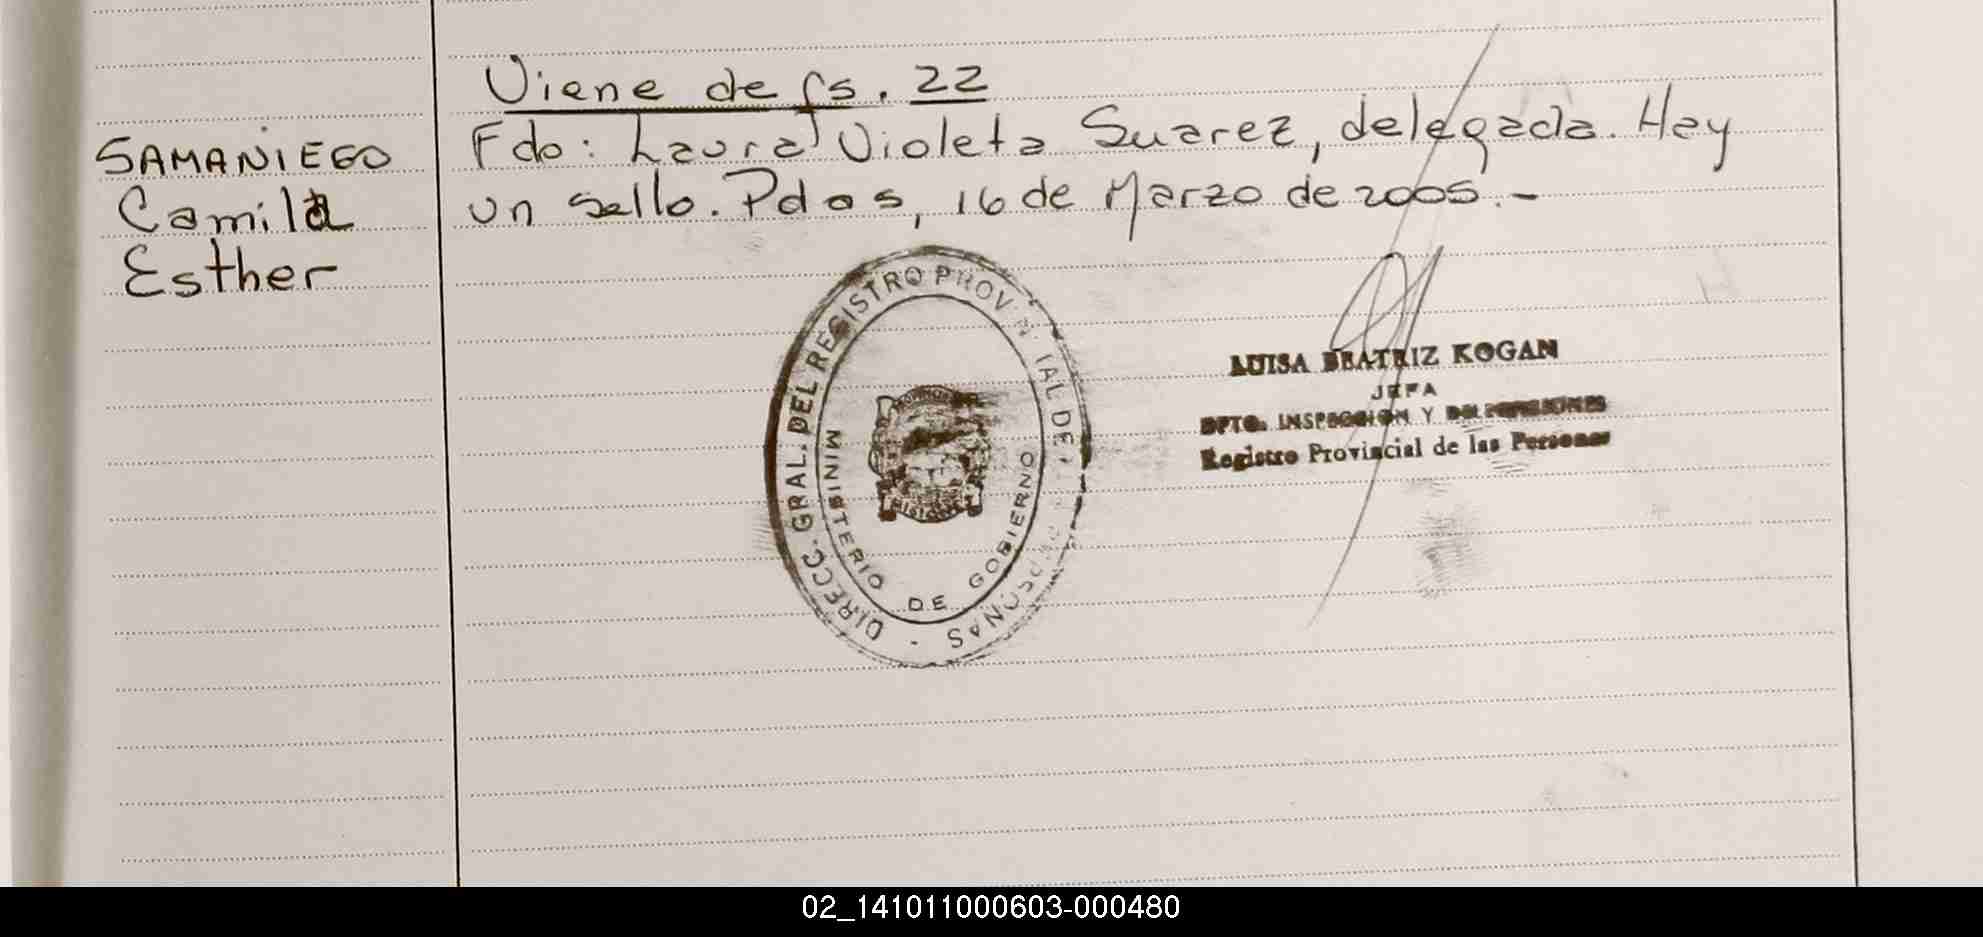 Viene de fs. 22
SAMANIEGO
Camila
Esther
Fdo: Laura Violeta Suarez, delegada. Hay
un sello. Pdas, 16 de Marzo de 2005.-
DIRECC. GRAL. DEL REGISTRO PROVINCIAL DE PERSONAS
MINISTERIO DE GOBIERNO
MISIONES
LUISA BEATRIZ KOGAN
JEFA
DPTO. INSPECCION Y
Registro Provincial de las Personas
02_141011000603-000480